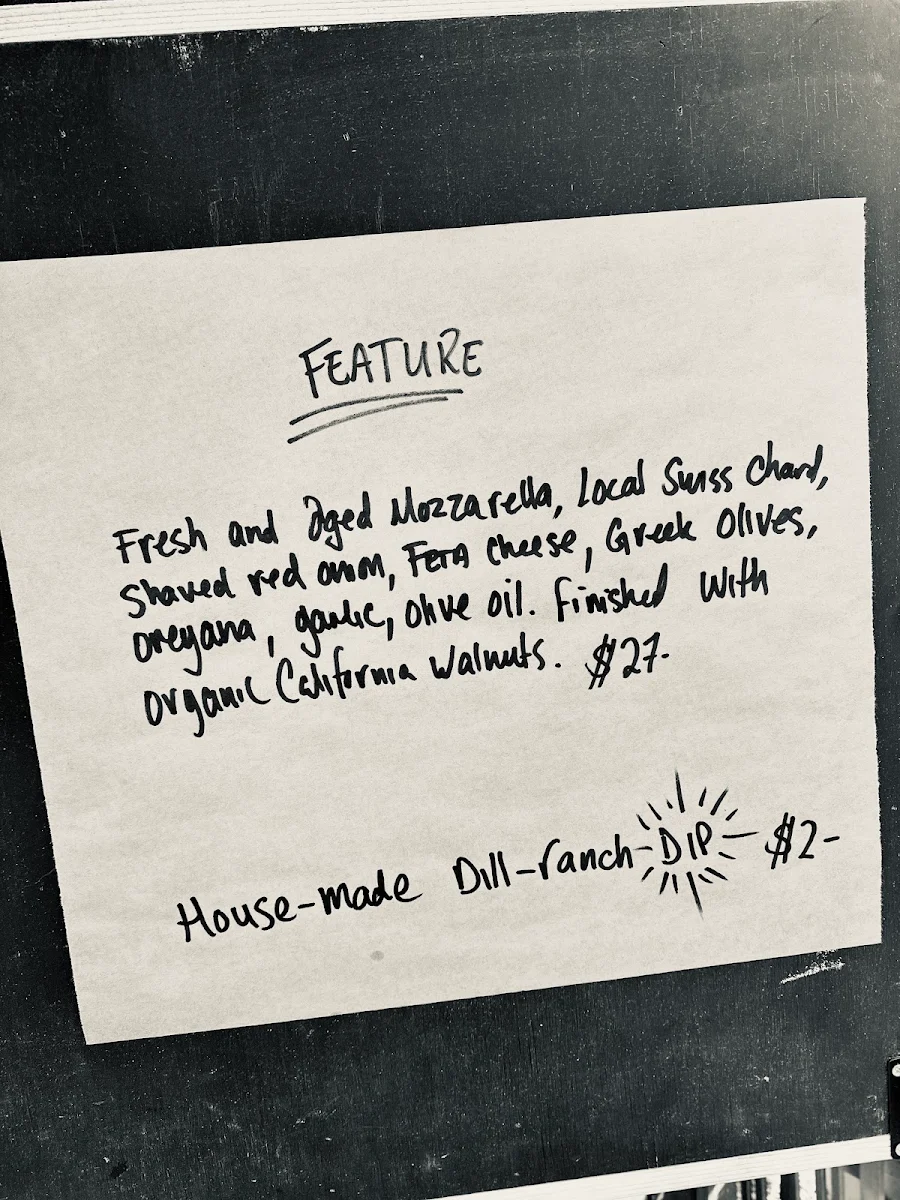 FEATURE
Fresh and Aged Mozzarella, Local Swiss Chard,
Shaved red onion, FETA Cheese, Greek Olives,
oreyana, garlic, olive oil. Finished with
organic California Walnuts. $27-
House-made Dill-ranch-DIP- $2-